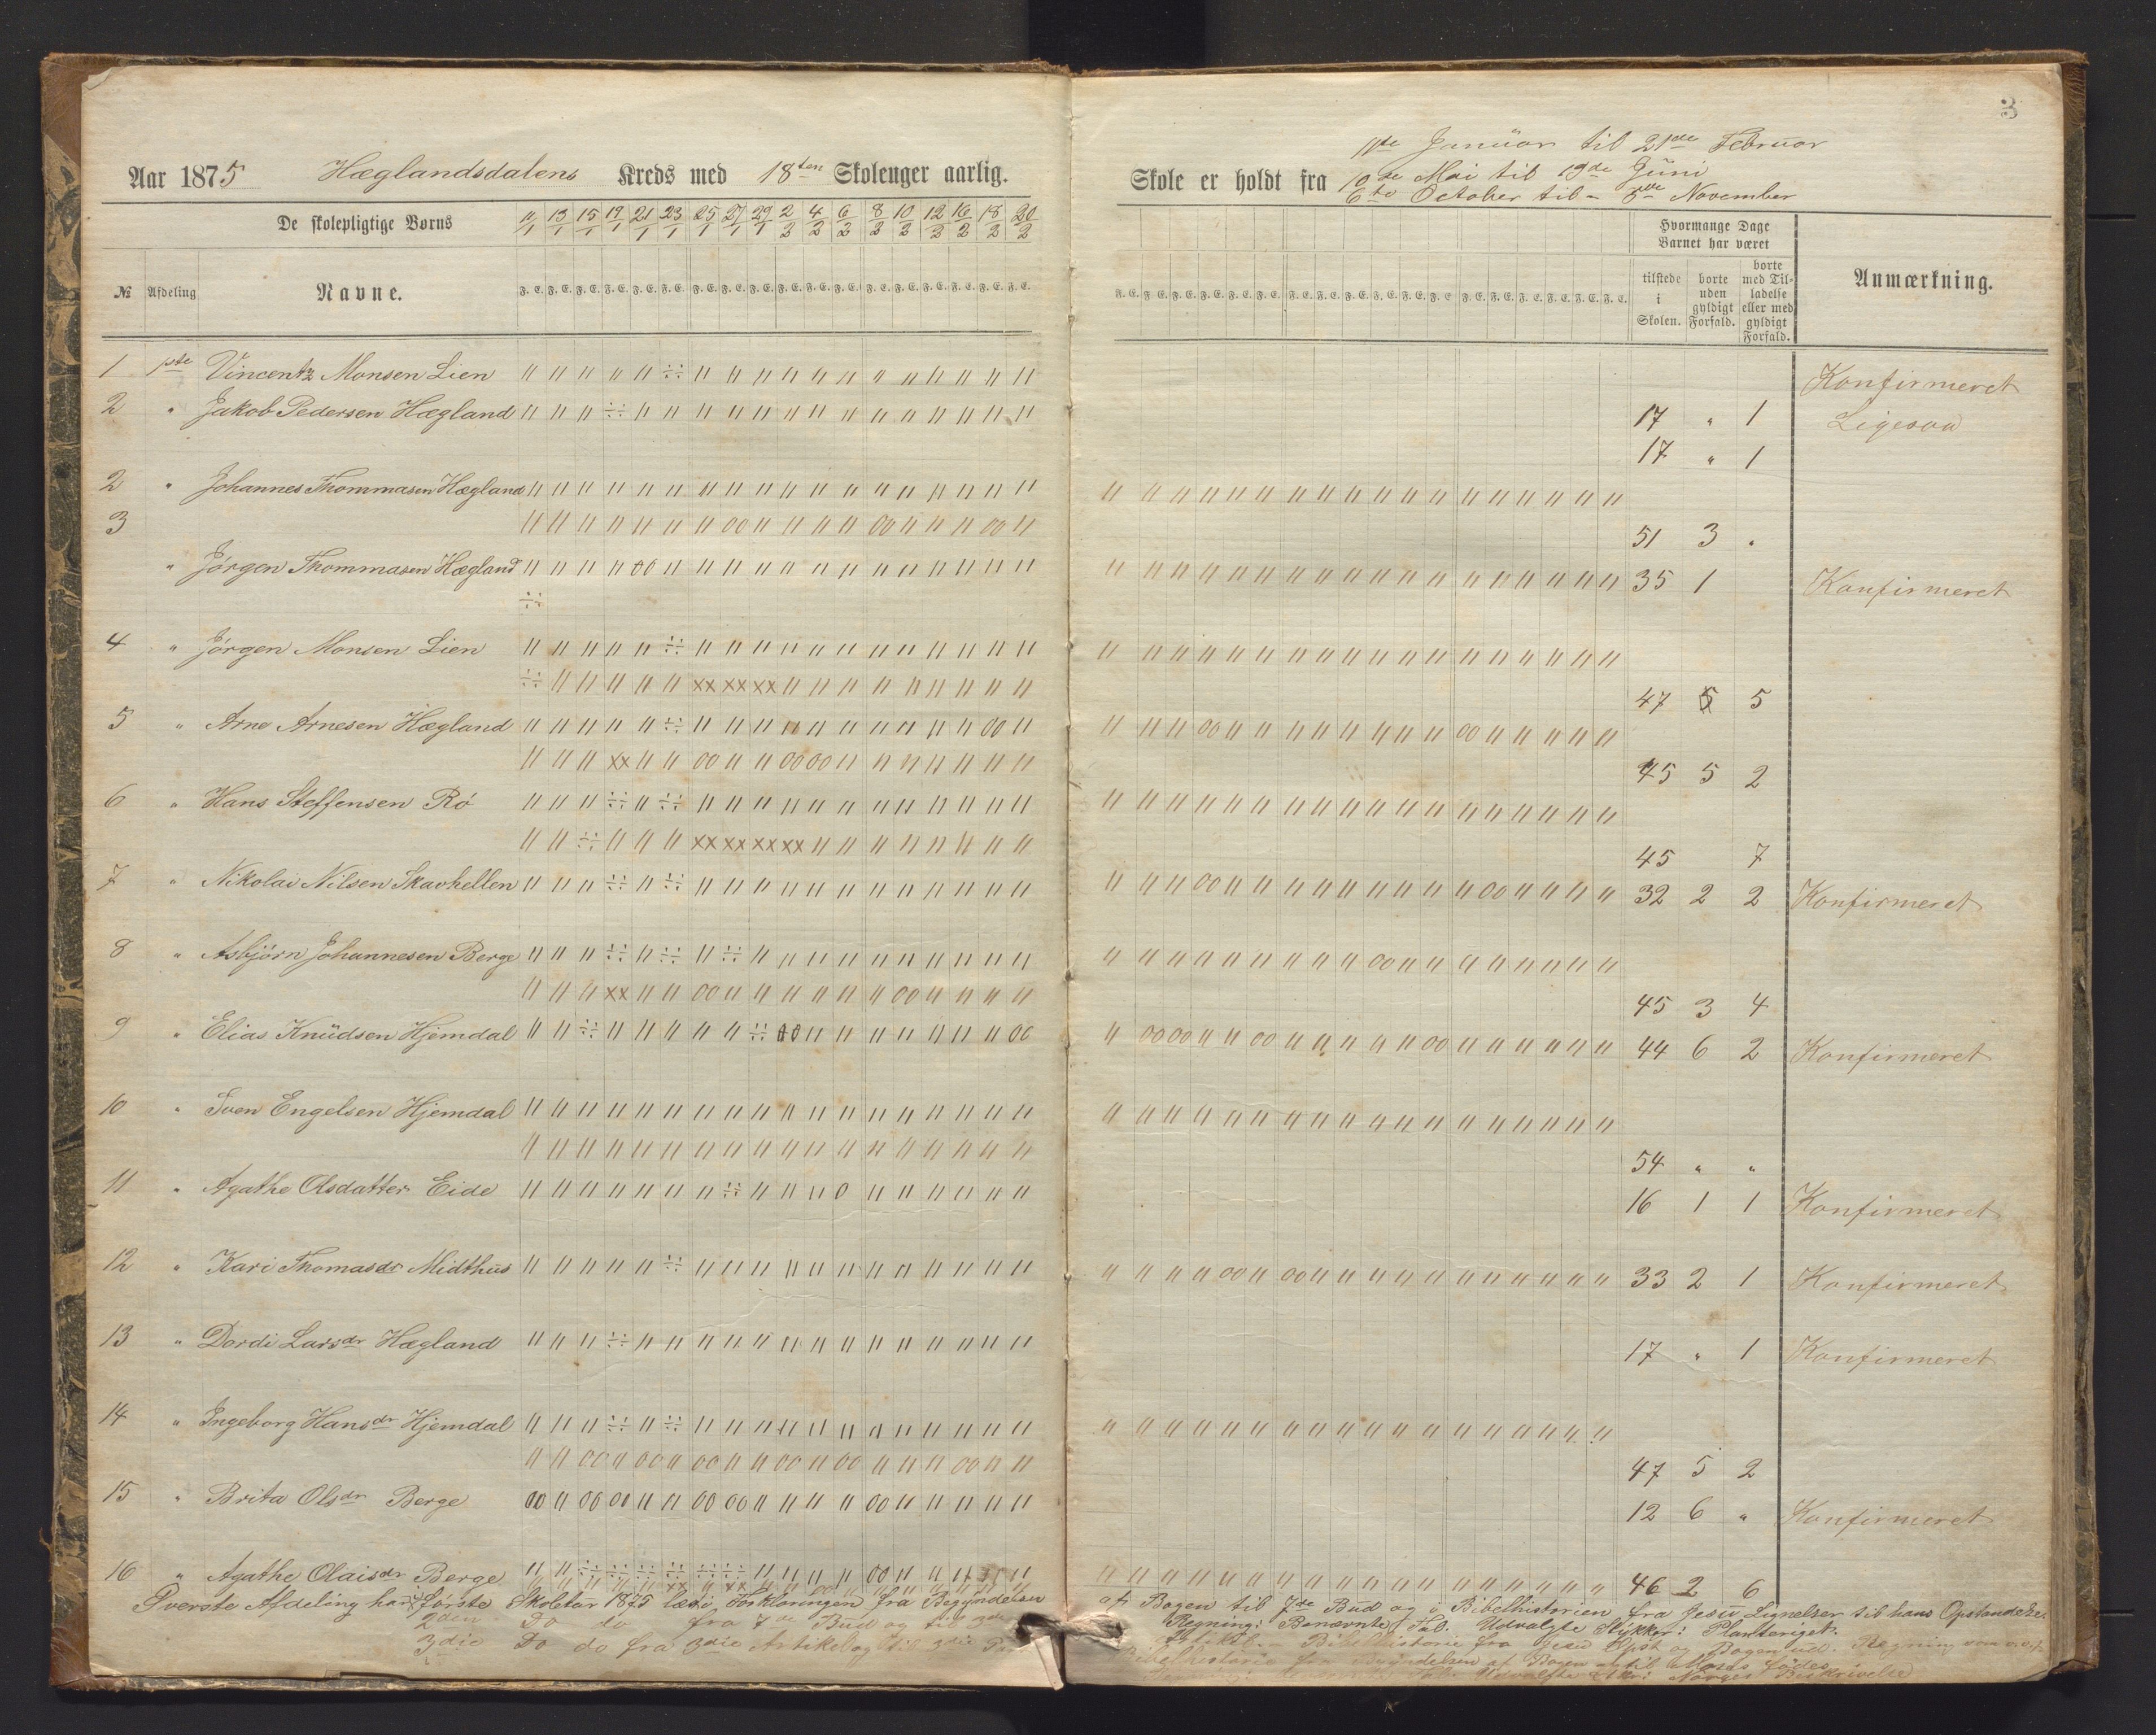 3
Aar 1875 Hæglandsdalens Kreds med 18ten Skoleuger aarlig.
Skole er holdt fra 11te Januar til 21de Februar
10de Mai til 19de Juni
6te October til - 8de November
De skolepligtige Børns
11/1 13/1 15/1 19/1 21/1 23/1 25/1 27/1 29/1 2/2 4/2 6/2 8/2 10/2 12/2 16/2 18/2 20/2
Hvormange Dage Barnet har været
№ Afdeling Navne.
F. E. F. E. F. E. F. E. F. E. F. E. F. E. F. E. F. E. F. E. F. E. F. E. F. E. F. E. F. E. F. E. F. E. F. E.
tilstede i Skolen.
borte uden gyldigt Forfald.
borte med Tilladelse eller med gyldigt Forfald.
Anmærkning.
1 1ste Vincentz Monsen Lien 17 " 1 Konfirmeret
2 " Jakob Pedersen Hægland 17 " 1 Ligesaa
2 " Johannes Thommasen Hægland
3 51 3 "
" Jørgen Thommasen Hægland 35 1 Konfirmeret
4 " Jørgen Monsen Lien
47 5 5
5 " Arne Arnesen Hægland
45 5 2
6 " Hans Steffensen Rø
45 7
7 " Nikolai Nilsen Skavhellen 32 2 2 Konfirmeret
8 " Asbjörn Johannesen Berge
45 3 4
9 " Elias Knüdsen Hjemdal 44 6 2 Konfirmeret
10 " Sven Engelsen Hjemdal
54 " "
11 " Agathe Olsdatter Eide 16 1 1 Konfirmeret
12 " Kari Thomasdr Midthus 33 2 1 Konfirmeret
13 " Dordi Larsdr Hægland 17 " 1 Konfirmeret
14 " Ingeborg Hansdr Hjemdal
47 5 2
15 " Brita Olsdr Berge 12 6 " Konfirmeret
16 " Agathe Olaisdr Berge 46 2 6
Øverste Afdeling har i første Skoleaar 1875 læst i Forklaringen fra Begyndelsen af Bogen til 7de Bud og i Bibelhistorien fra Jesu Lignelser til hans Opstandelse.
Regning: Benævnte Tal. Udvalgte Stykker: Planteriget.
2den Do do fra 7de Bud og til 3de Artikel. Bibelhistorie fra Jesu Opst og Bogen ud. Regning
3die Do do fra 3die Artikel og til 3die Bibelhistorie fra Begyndelsen af Bogen og til
Udvalgte Norges Beskrivelse